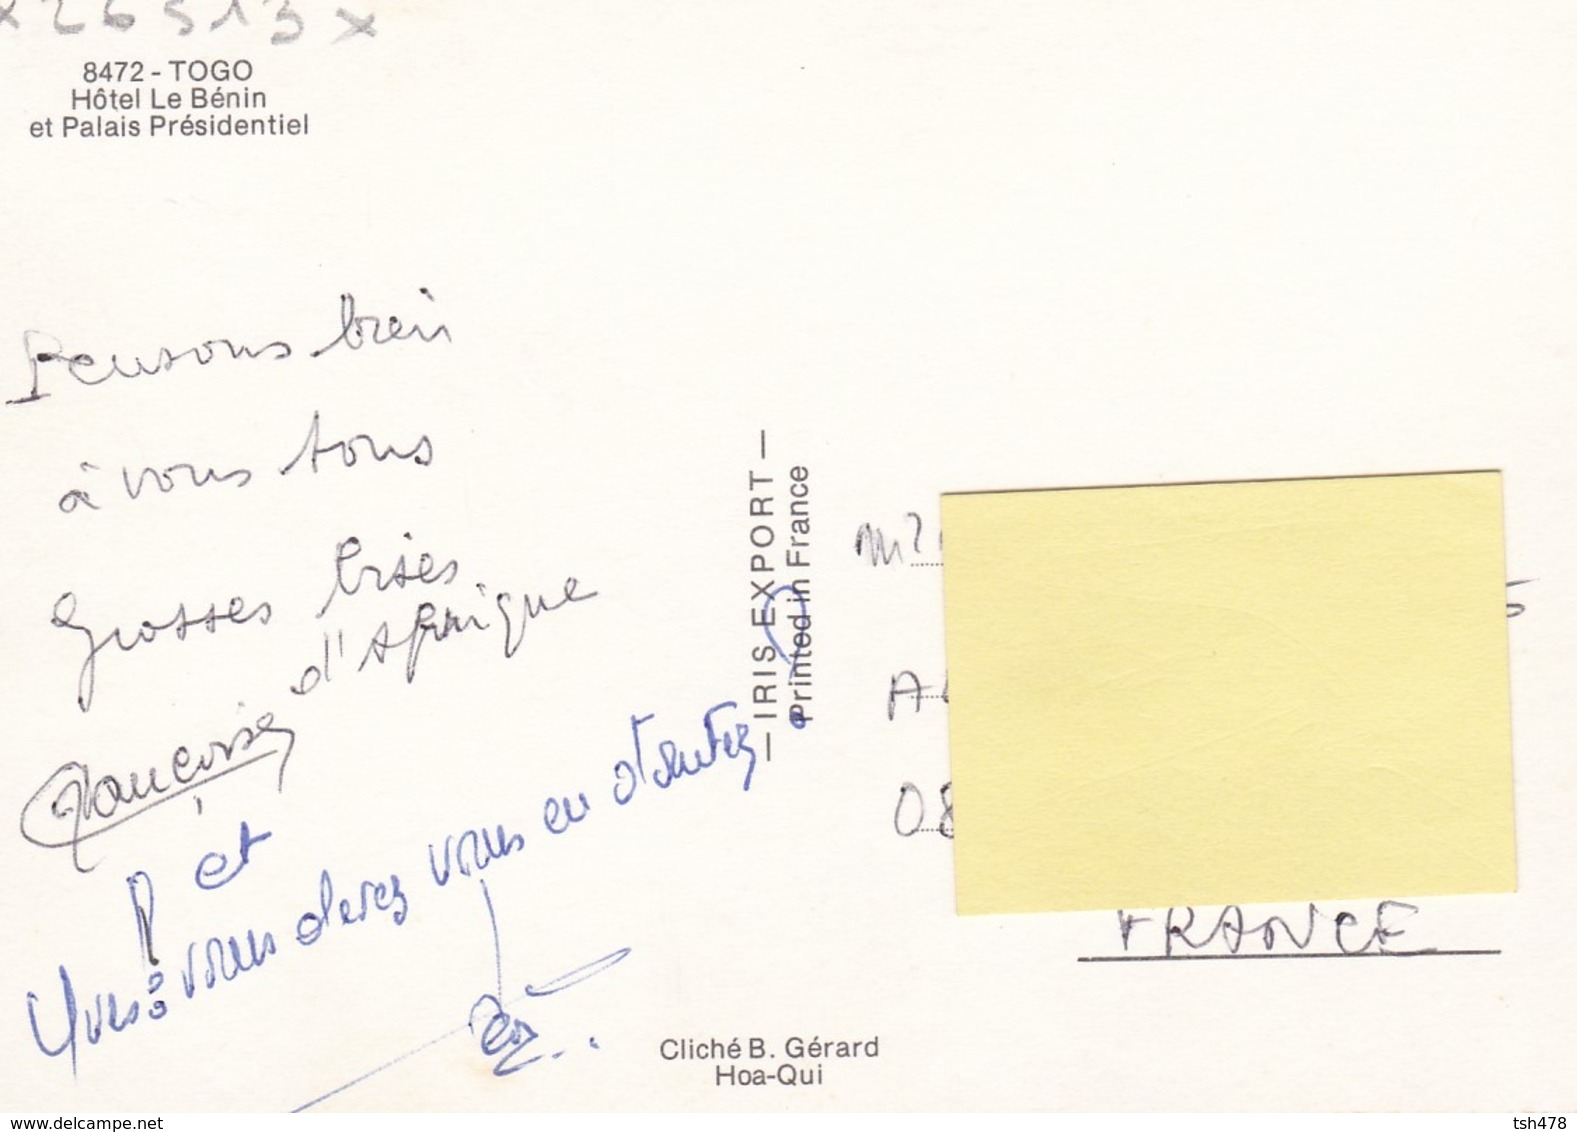 x26513x
8472 - TOGO
Hôtel Le Bénin
et Palais Présidentiel
Pensons bien
à vous tous
Grosses bises
d'Afrique
Françoise
et
Yves à vous devez vous en douter
— IRIS EXPORT —
Printed in France
08
FRANCE
Cliché B. Gérard
Hoa-Qui
www.delcampe.net
tsh478